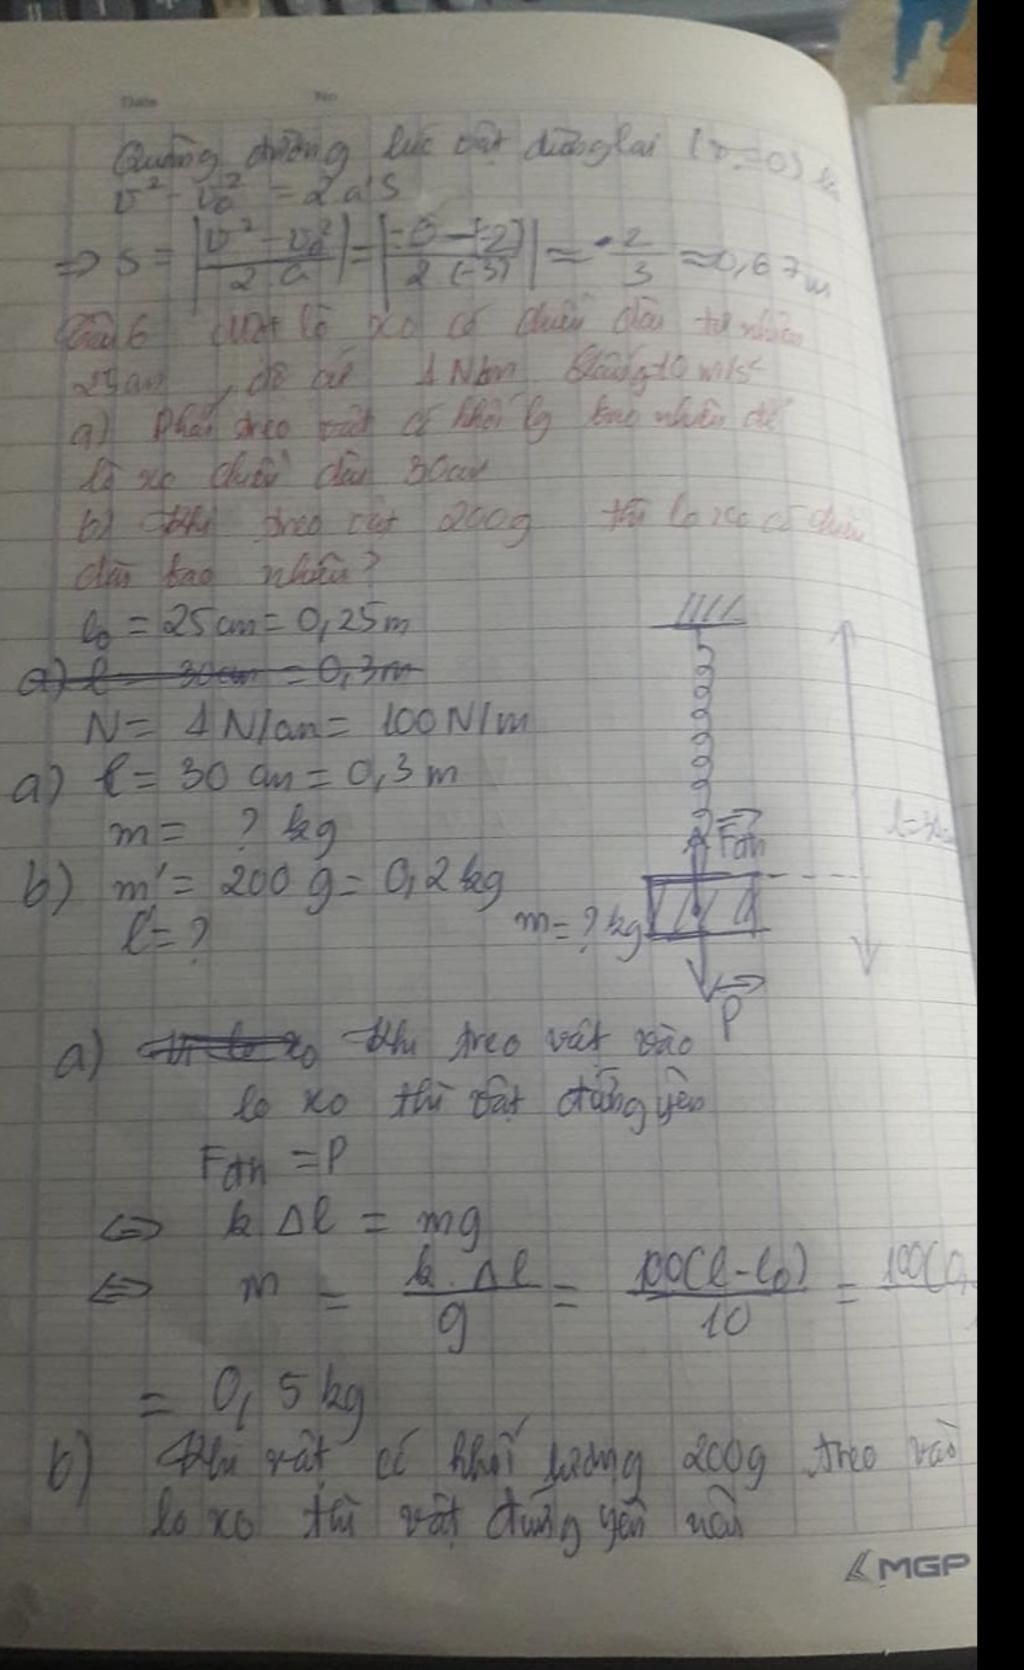 Date No
Quãng đường lúc vật dừng lại (v=0) là
v² - v₀² = 2a's
=> s = |v² - v₀² / 2.a| = |-0 - (-2) / 2.(-3)| = 2/3 ≈ 0,67m
6 lò xo có chiều dài tự nhiên
25cm, độ cứ 1 N/cm g 10 m/s²
a) Phải treo vật có khối lg bao nhiêu để
lò xo chiều dài 30cm
b) Khi treo vật 200g thì lò xo có chiều
dài bao nhiêu?
l₀ = 25cm = 0,25m
a) l = 30cm = 0,3m
N = 1 N/cm = 100N/m
a) l = 30 cm = 0,3 m
m = ? kg
Fđh
b) m' = 200 g = 0,2 kg
l' = ?
m = ? kg
P
a) xo Khi treo vật vào
lo xo thì vật đứng yên
Fđh = P
<=> k Δl = mg
<=> m = k.Δl / g = 100(l-l₀) / 10 = 100(0,
= 0,5kg
b) Khi vật có khối lượng 200g treo vào
lo xo thì vật đứng yên nên
MGP